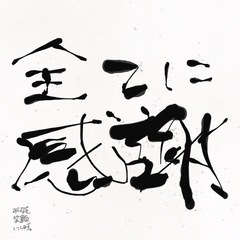 全てに
感謝